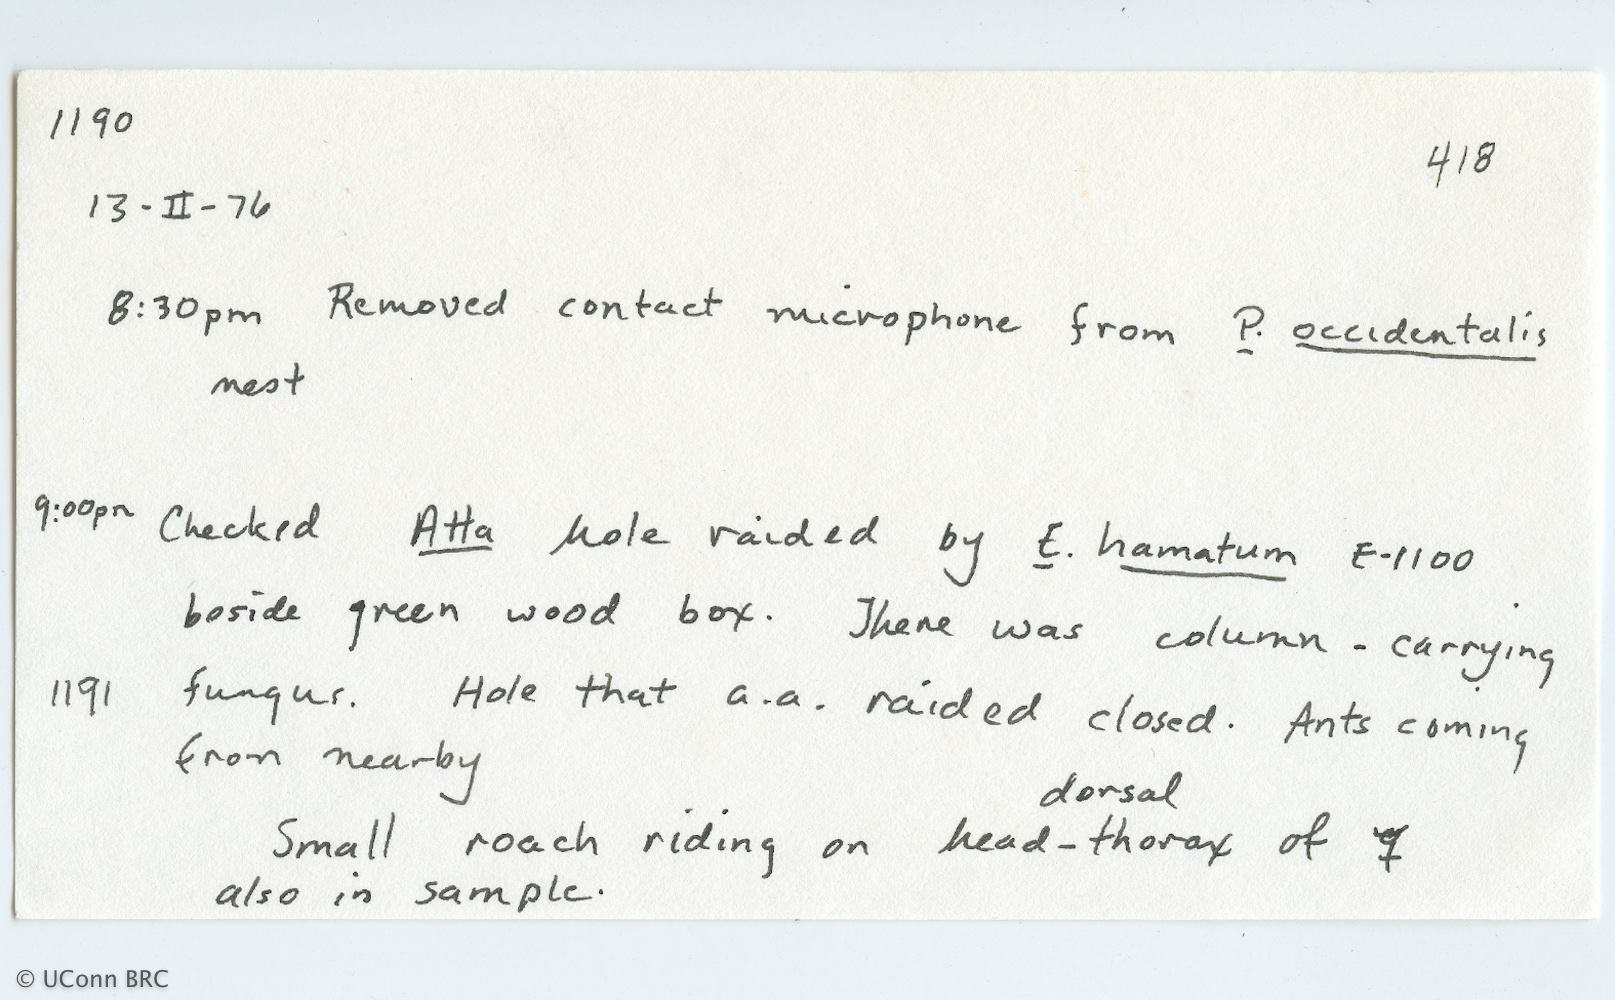 1190
418
13-II-76
8:30pm Removed contact microphone from P. occidentalis
nest
9:00pm Checked Atta hole raided by E. hamatum E-1100
beside green wood box. There was column - carrying
1191 fungus. Hole that a.a. raided closed. Ants coming
from nearby
dorsal
Small roach riding on head-thorax of
also in sample.
© UConn BRC